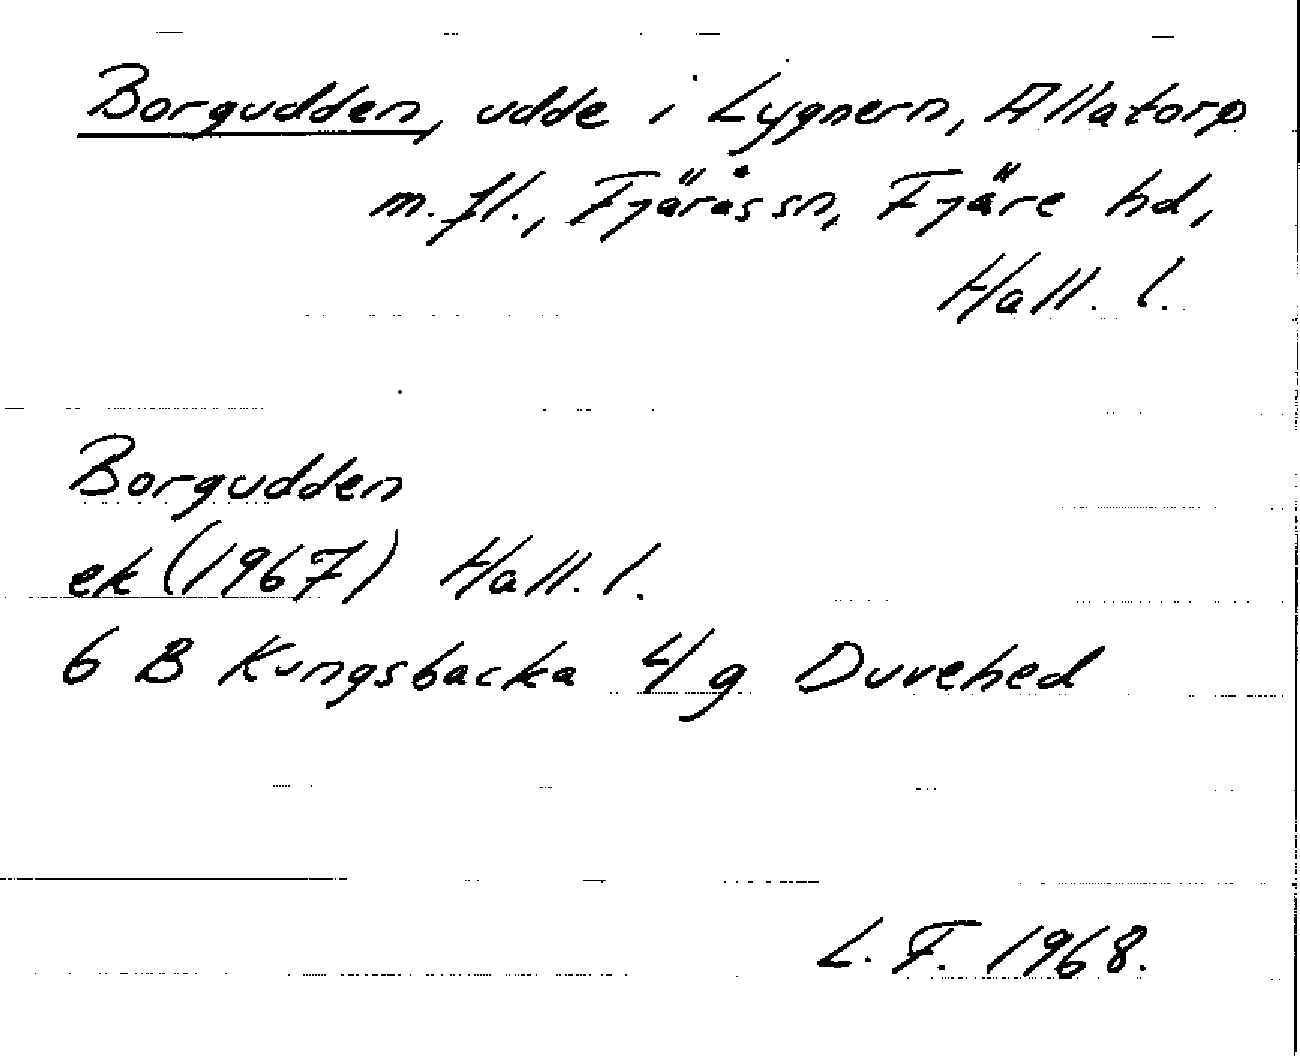 Borgudden, udde i Lygnern, Allatorp
m.fl., Fjärås sn, Fjäre hd,
Hall. l.
Borgudden
ek (1967) Hall. l.
6 B Kungsbacka 4/g Duvehed
L. F. 1968.